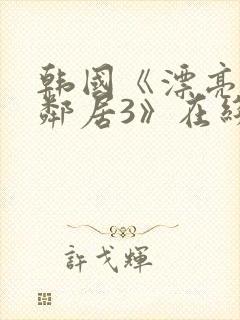 韩国《漂亮
邻居3》在线
許戈輝